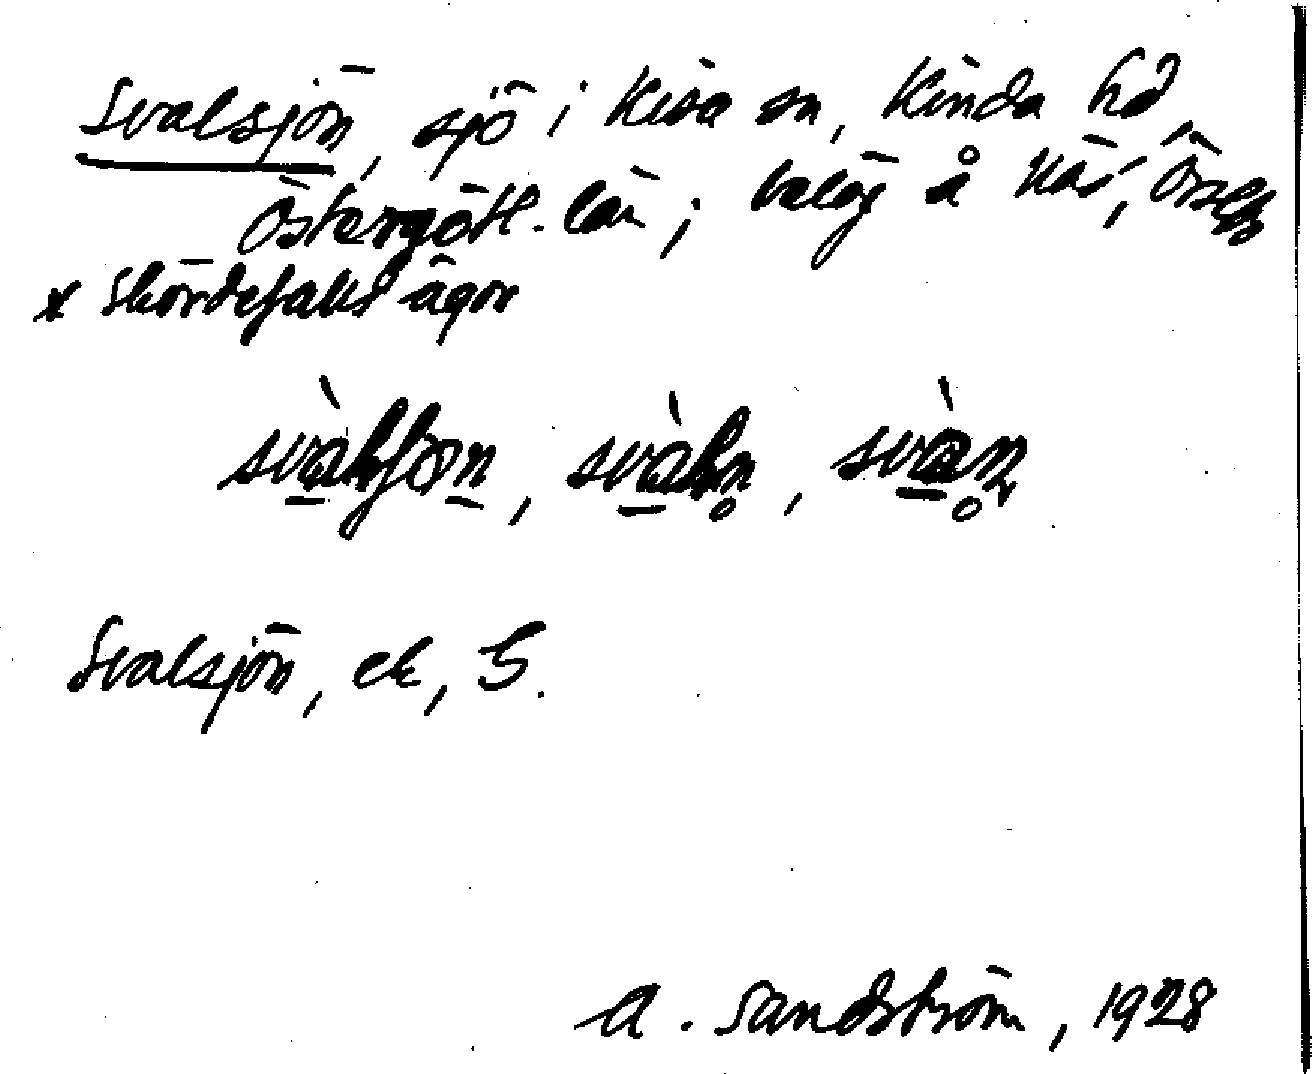 Svalsjön, sjö i Kisa sn, Kinda hd,
Östergötl. län; beläg å Näs,
x Skördefalls ägor
svàlʃøn, svàlsn̥, svàn̥
Svalsjön, ek, S.
A. Sandström, 1928